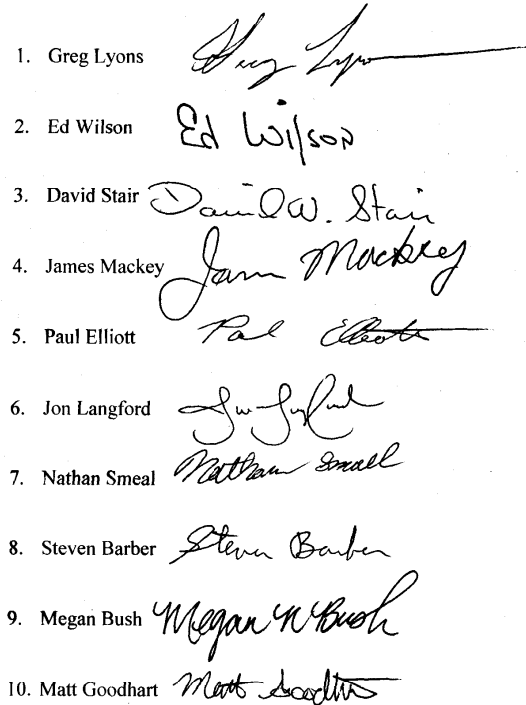 1. Greg Lyons Greg Lyons
2. Ed Wilson Ed Wilson
3. David Stair David W. Stair
4. James Mackey James Mackey
5. Paul Elliott Paul Elliott
6. Jon Langford Jon Langford
7. Nathan Smeal Nathan Smeal
8. Steven Barber Steven Barber
9. Megan Bush Megan N Bush
10. Matt Goodhart Matt Goodhart